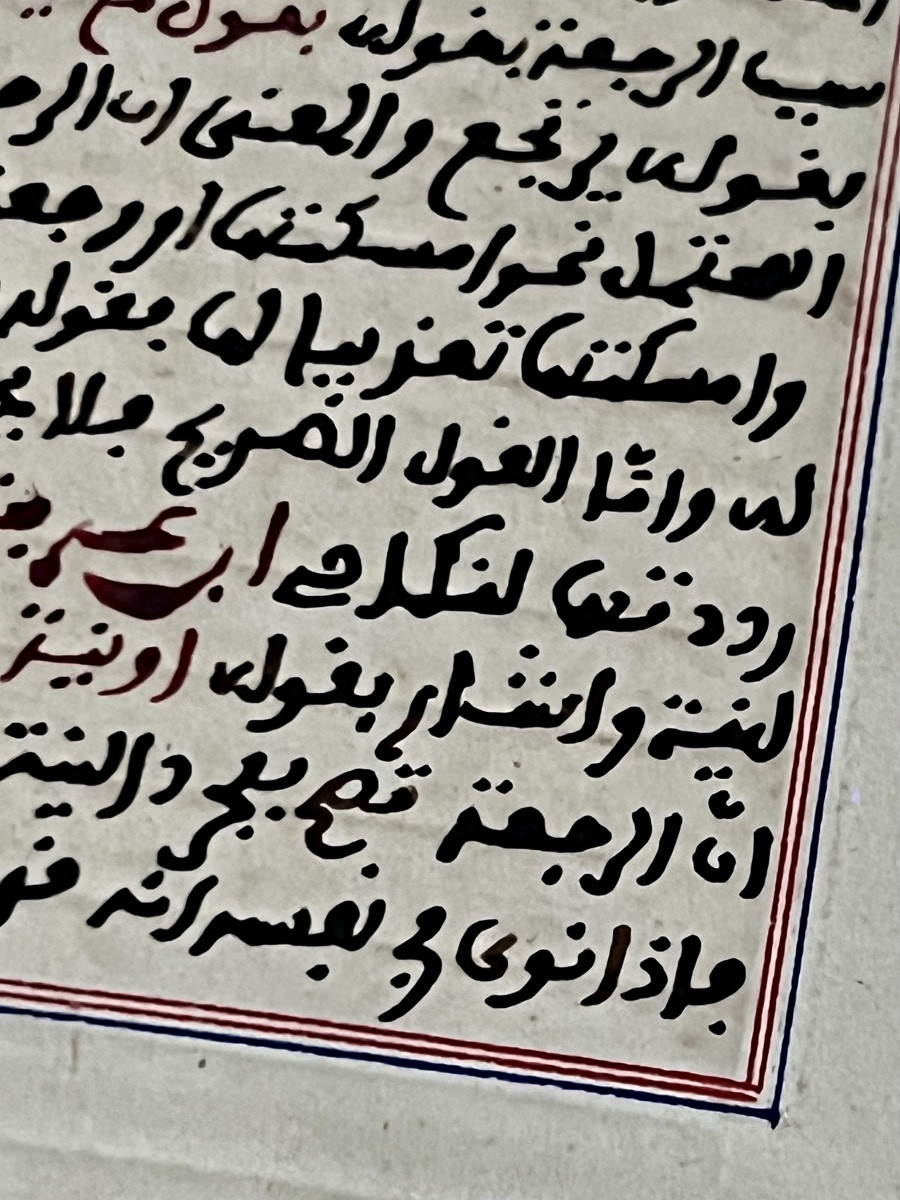 سبب الرجعة بقوله بقول مع
بقوله يرتجع والمعنى ان الر
المحتمل نحو امسكتها او رجعت
وامسكتها تعزيبا لها بقوله
له واما القول الصريح فلا
رددتها لنكاحي
لنية واشار بقوله او نية
ان الرجعة تصح بمجرد النية
فاذا نوى في نفسه انه